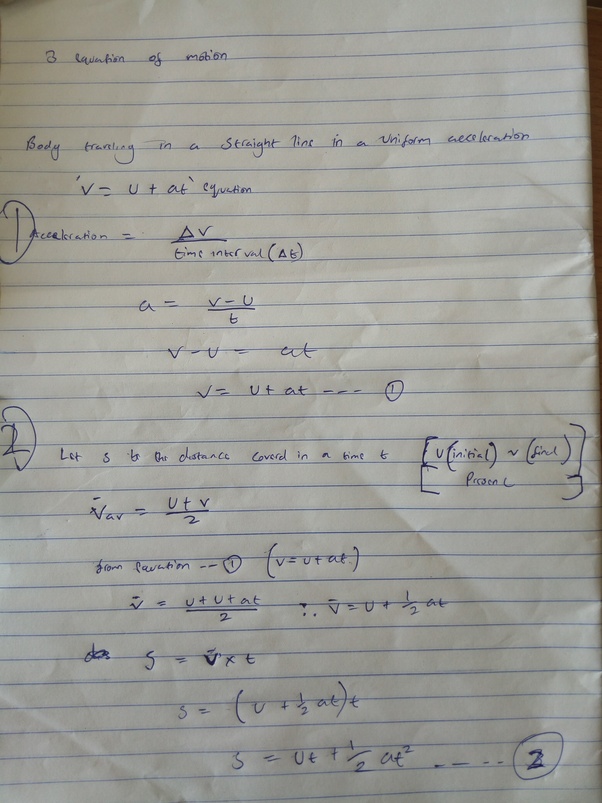 3 equation of motion
Body traveling in a straight line in a uniform acceleration
'v = u + at' equation
① Acceleration = Δv / time interval (Δt)
a = v - u / t
v - u = at
v = u + at --- ①
②
Let s be the distance coverd in a time t [u (initial) v (final)
Present]
v̄av = u + v / 2
from equation -- ① (v = u + at.)
v̄ = u + u + at / 2 ∴ v̄ = u + 1/2 at
s = v̄ x t
s = (u + 1/2 at) t
s = ut + 1/2 at² ---- ②